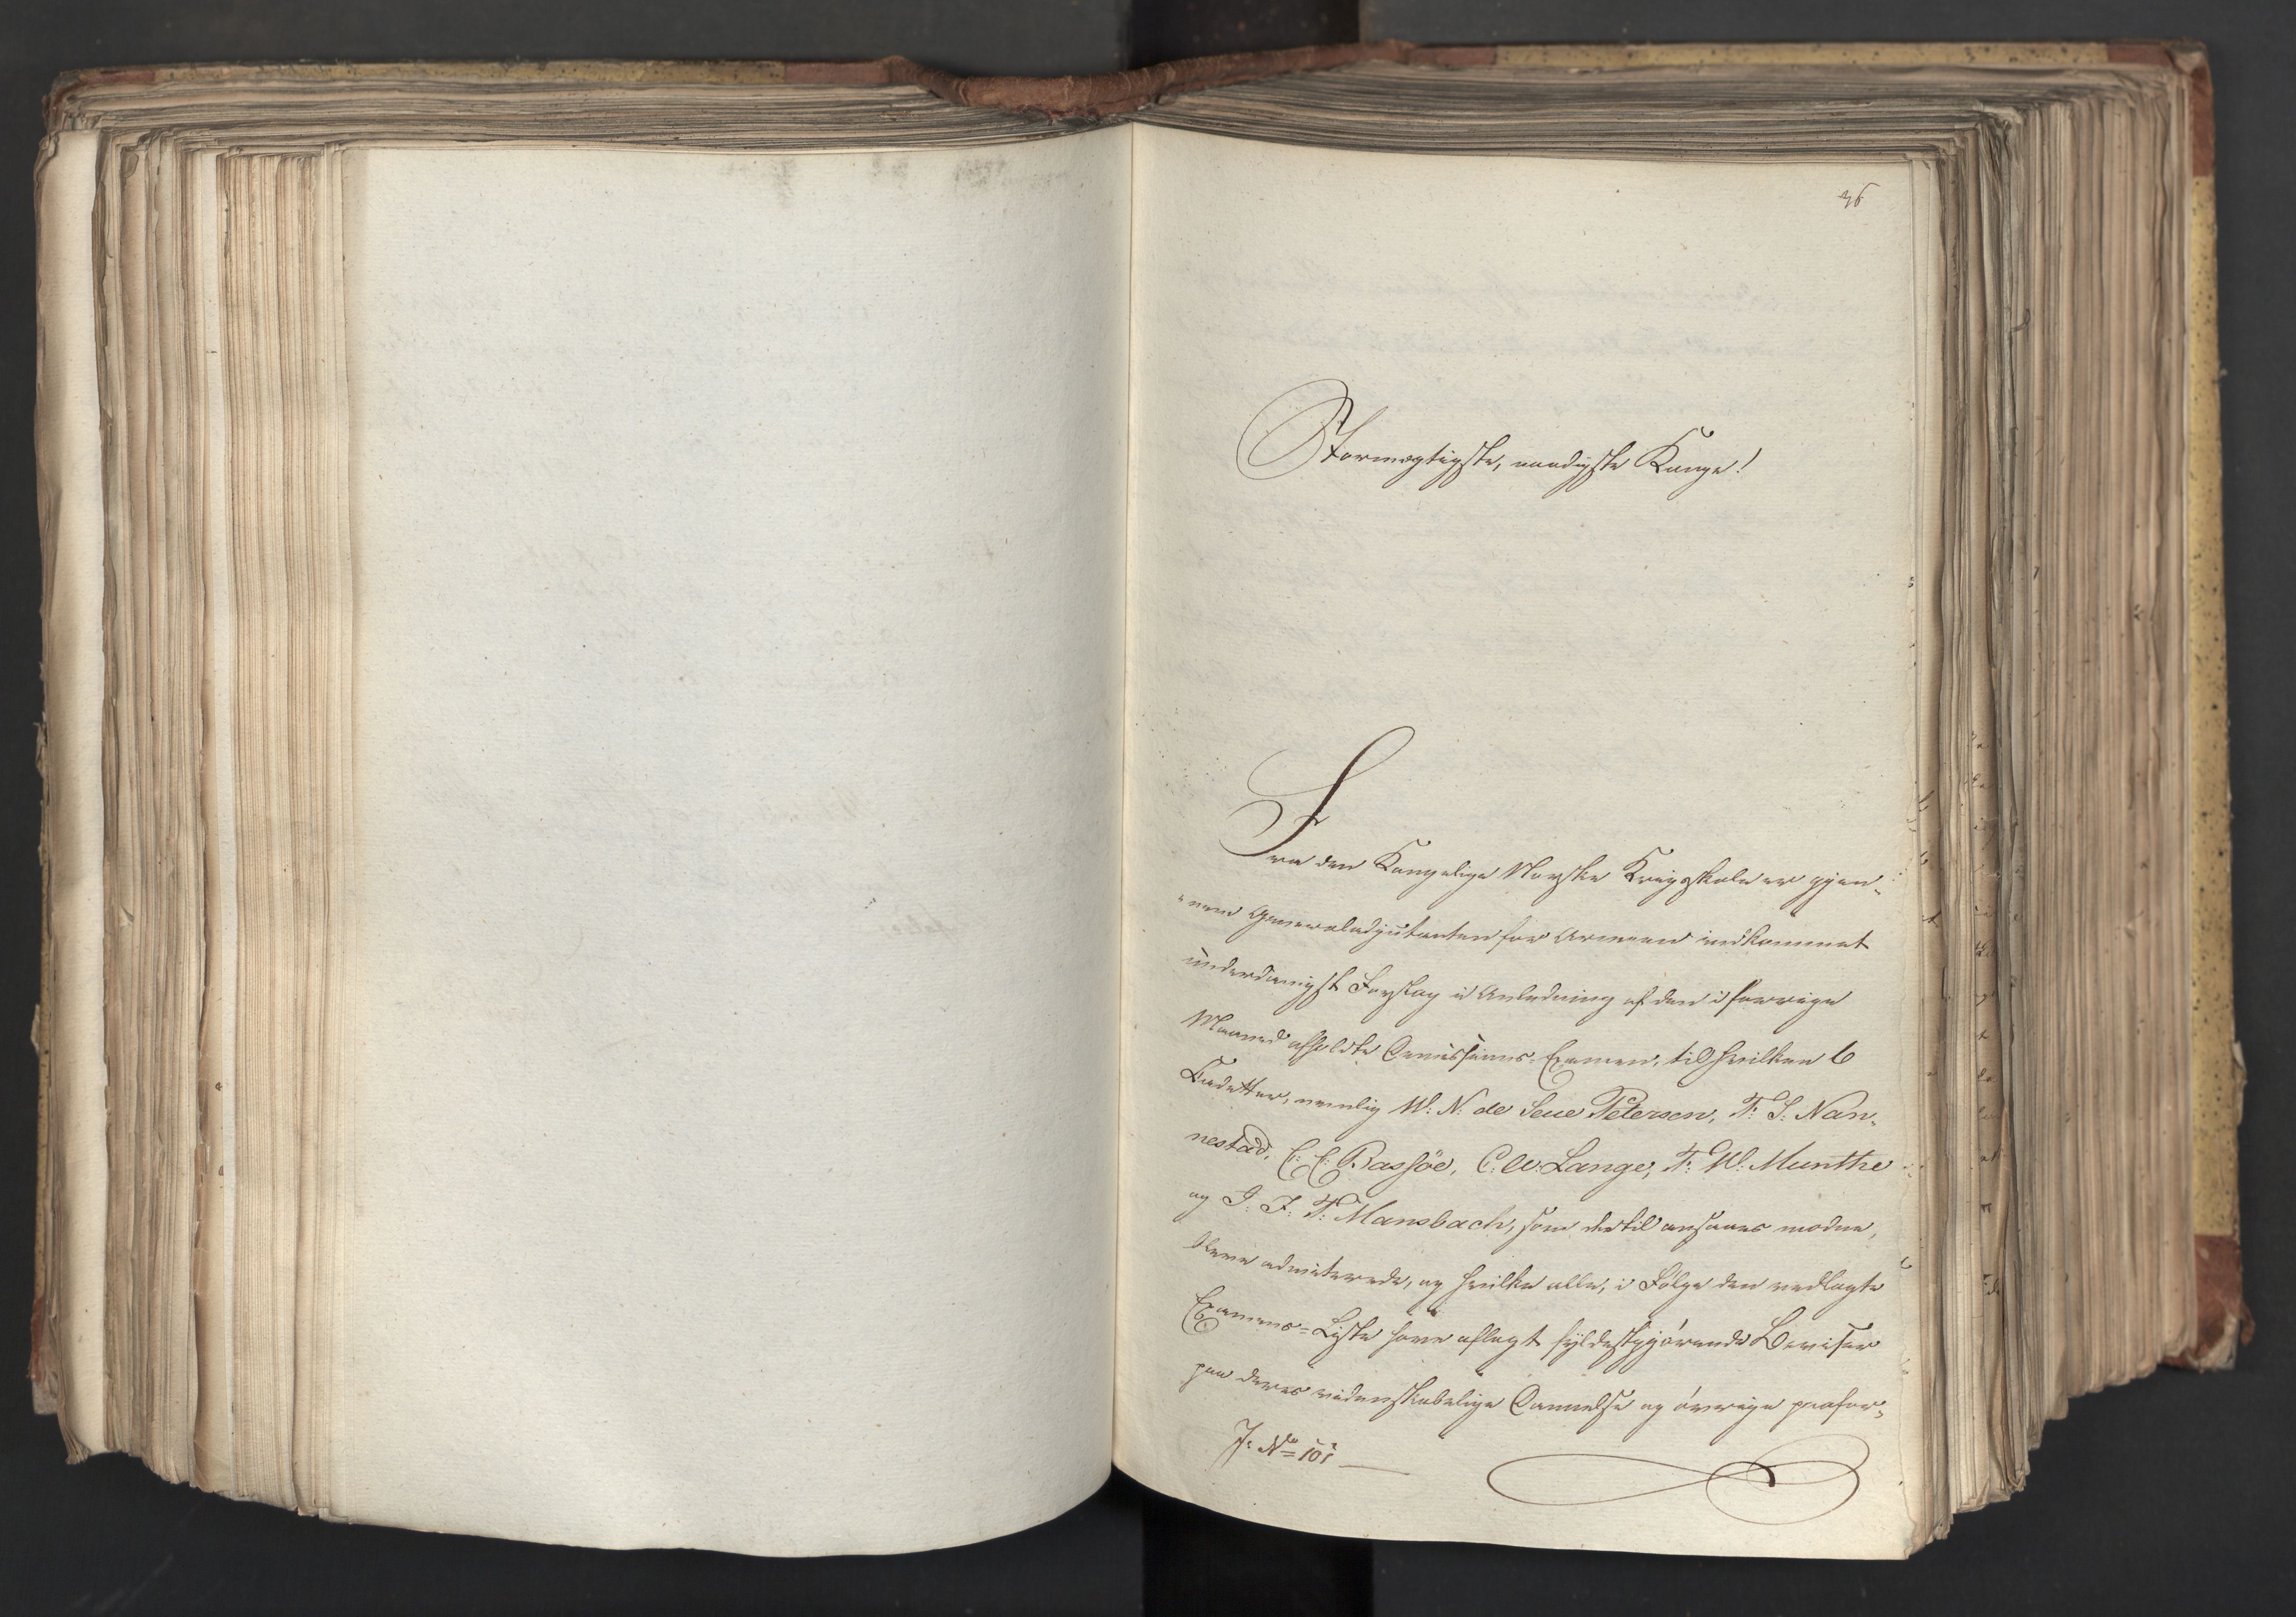 36
Stormægtigste, naadigste Konge!
Fra den Kongelige Norske Krigsskole er gjen-
nem Generaladjutanten for Armeen indkommet
underdanigst Forslag i Anledning af den i forrige
Maaned afholdte Examen, til hvilken 6
Kadetter, nemlig W: N: de Seue Petersen, T: S: Nan-
nestad, C: C: Bassøe, C: W. Lange, T: W: Munthe
og J. F: T: Mansbach, som dertil ansaaes modne,
bleve admitterede, og hvilke alle, i Følge den vedlagte
Examens-Liste have aflagt fyldestgjørende Beviser
paa deres videnskabelige Dannelse og øvrige
J: No 101